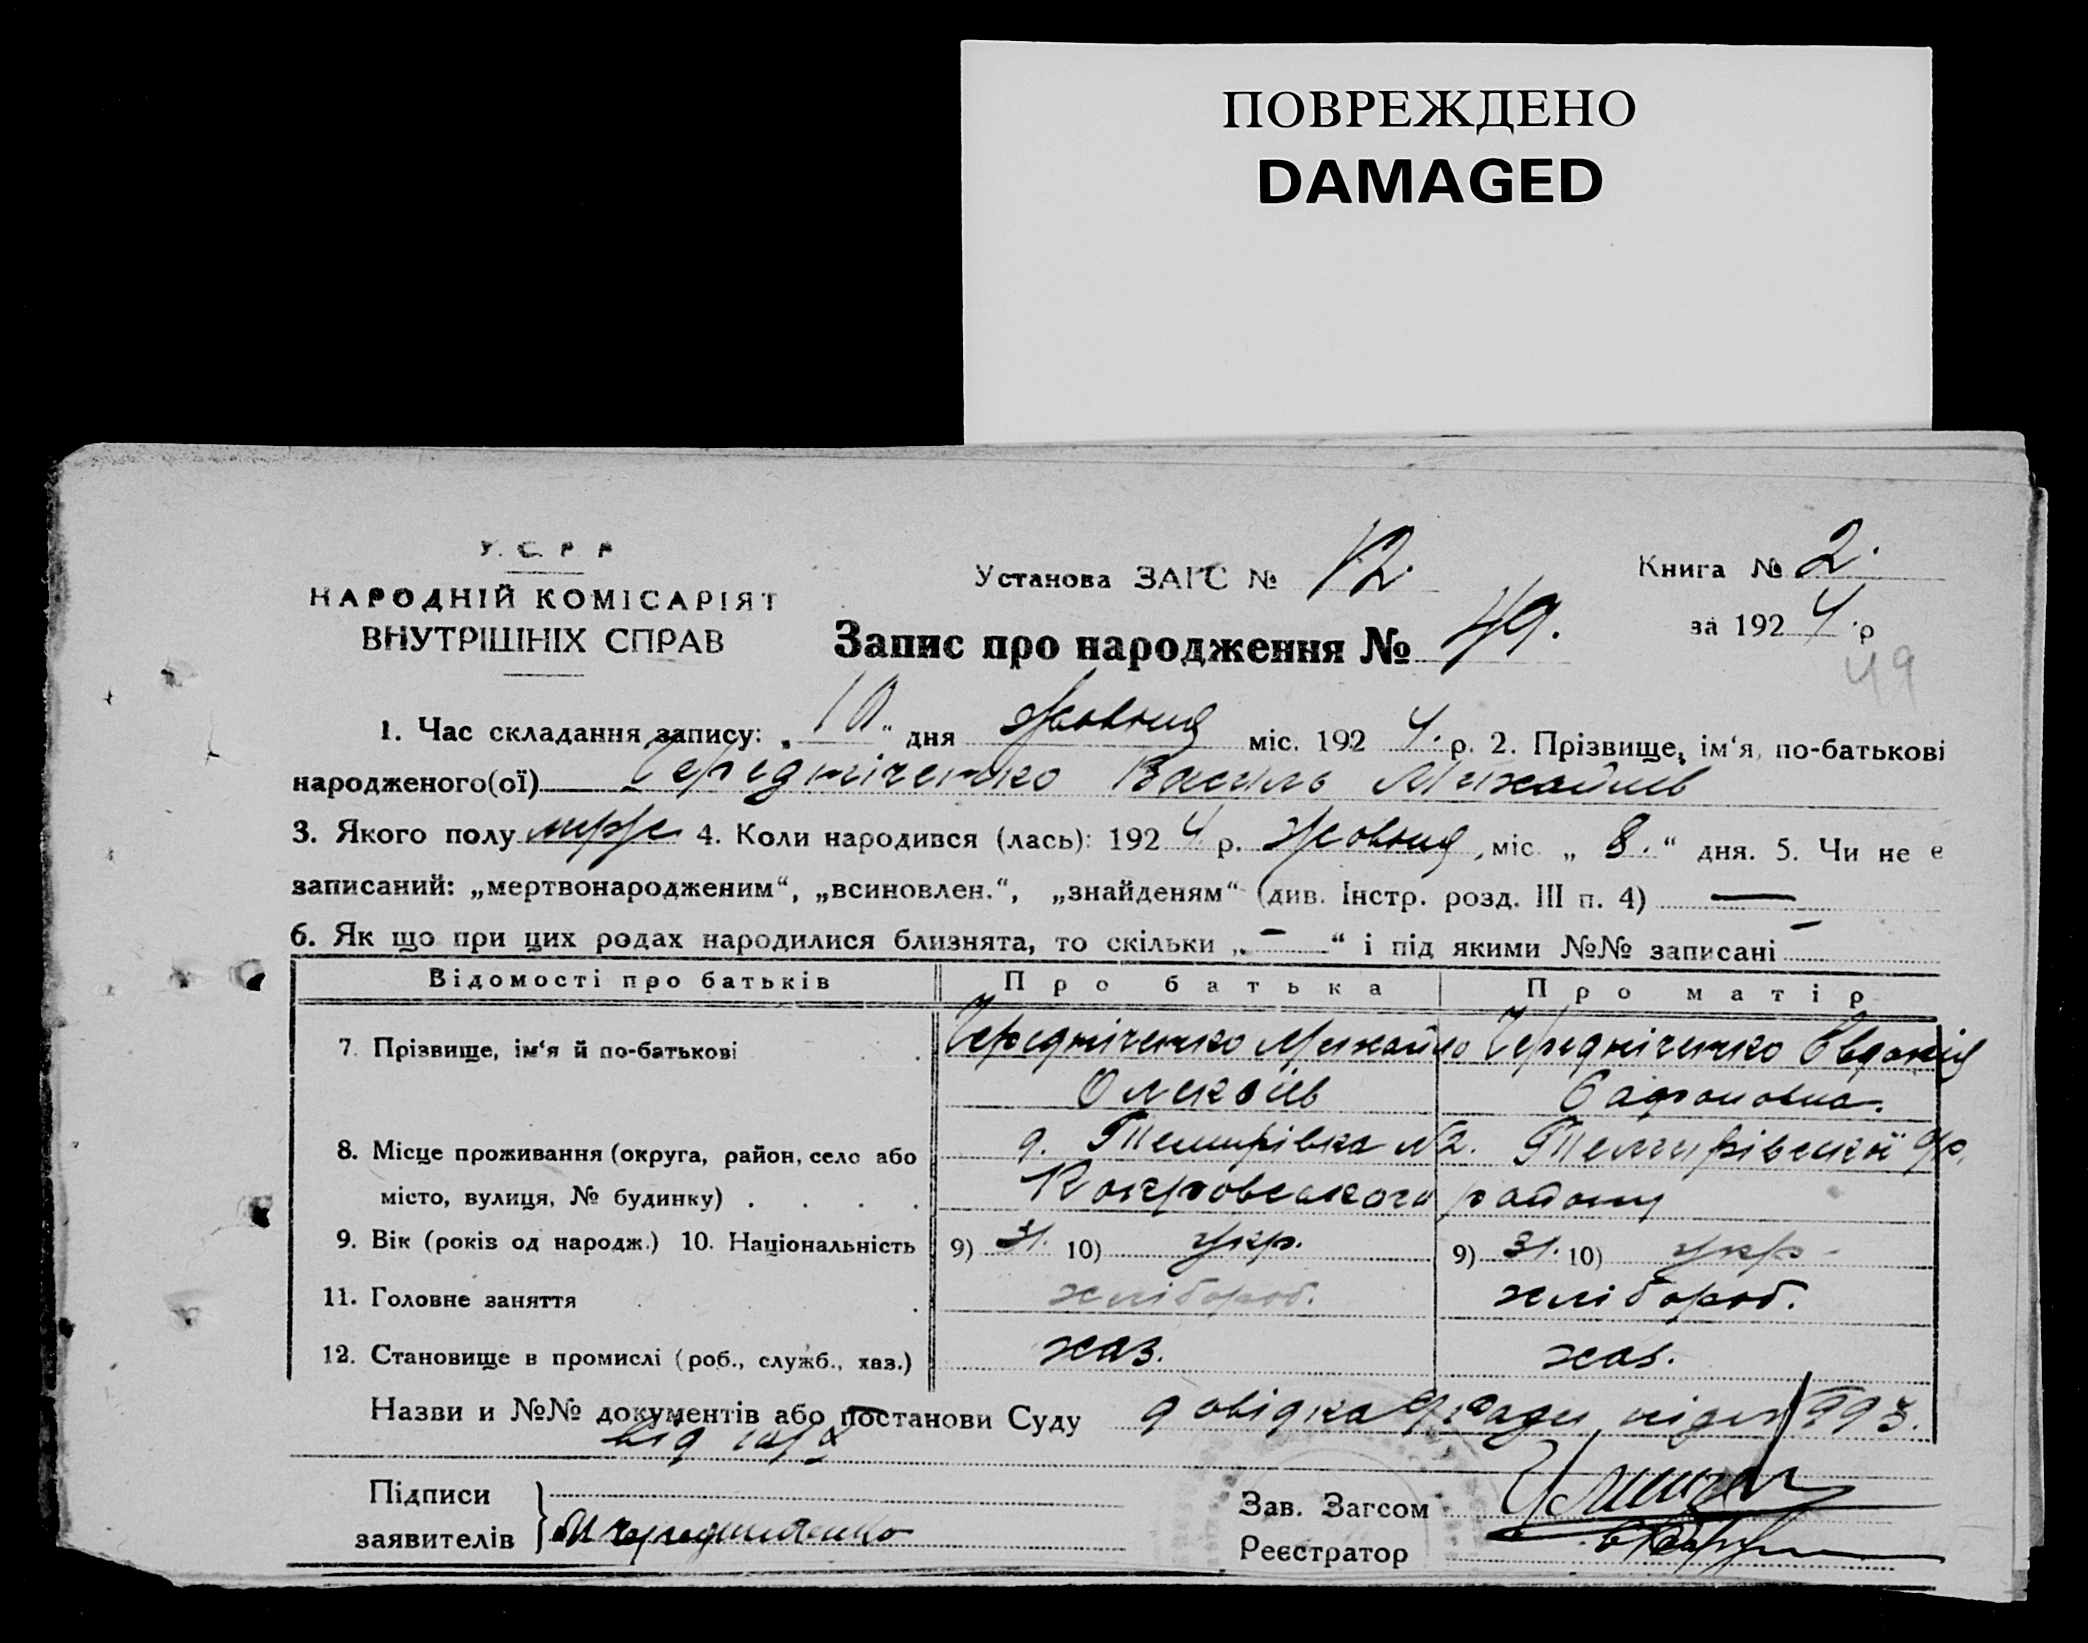 ПОВРЕЖДЕНО
DAMAGED
У. С. Р. Р.
НАРОДНІЙ КОМІСАРІЯТ
ВНУТРІШНІХ СПРАВ
Установа ЗАГС № 12.
Книга № 2.
за 1924 р
Запис про народження № 49.
49
1. Час складання запису: „10“ дня Жовтня міс. 1924. р. 2. Прізвище, ім‘я, по-батькові
народженого(ої) Чередніченко Василь Михайлів
3. Якого полу муж 4. Коли народився (лась): 1924 р. Жовтня, міс. „8.“ дня. 5. Чи не є
записаний: „мертвонародженим“, „всиновлен.“, „знайденям“ (див. Інстр. розд. III п. 4) —
6. Як що при цих родах народилися близнята, то скільки „–“ і під якими №№ записані –
Відомості про батьків Про батька Про матір
7. Прізвище, ім‘я й по-батькові Чередніченко Михайло Чередніченко Євдокія
Олексіїв
8. Місце проживання (округа, район, село або с. Темирівка №2. Темирівської
місто, вулиця, № будинку) Покровського району
9. Вік (років од народж.) 10. Національність 9) 31. 10) укр. 9) 31. 10) укр
11. Головне заняття хлібороб. хлібороб.
12. Становище в промислі (роб., служб., хаз.) хаз. хаз.
Назви и №№ документів або постанови Суду довідка с/ради
Підписи
заявителів М Чередниченко
Зав. Загсом
Реєстратор